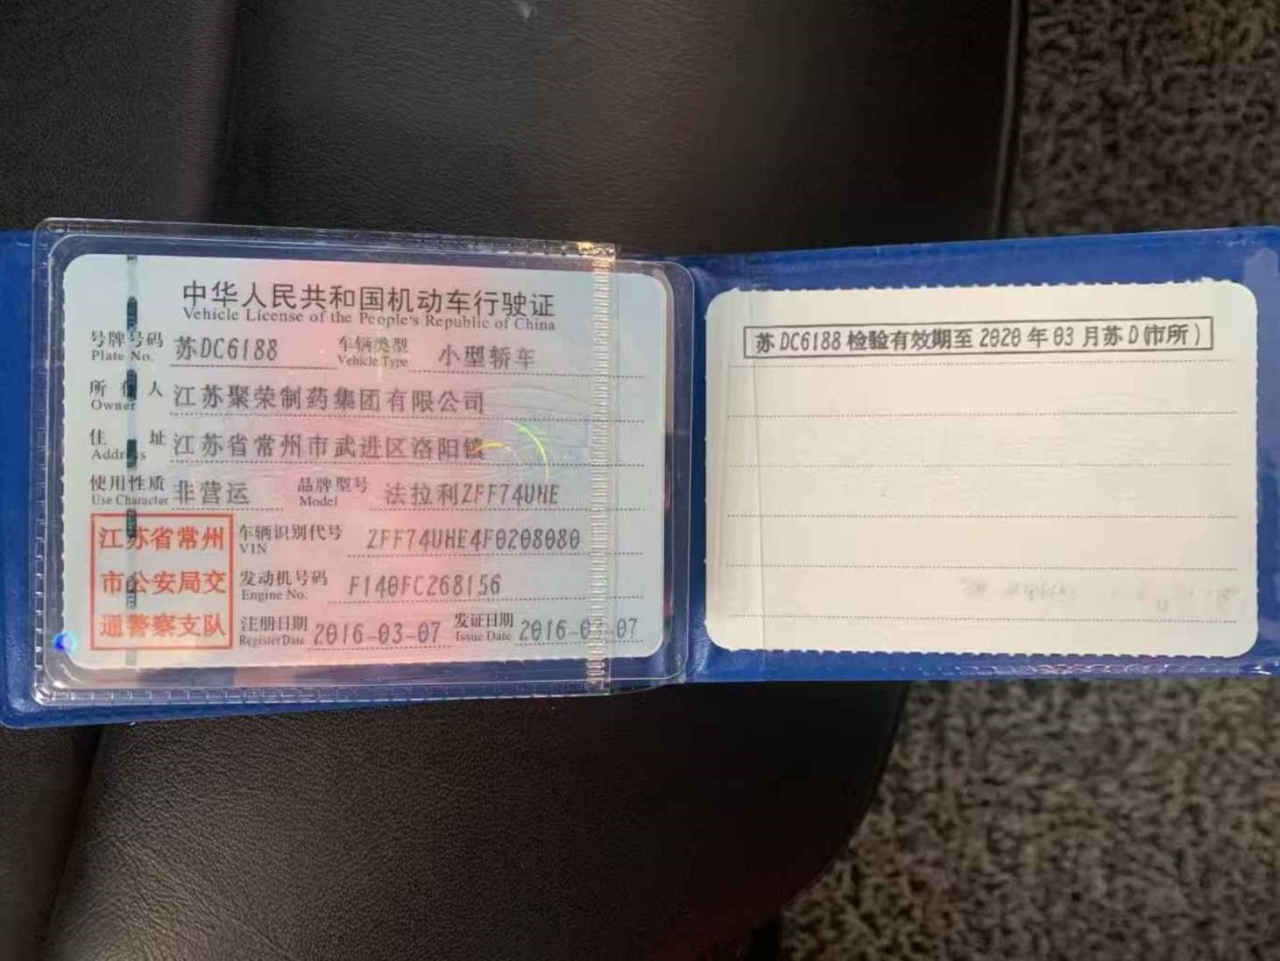 中华人民共和国机动车行驶证
Vehicle License of the People's Republic of China
号牌号码 苏DC6188 车辆类型 小型轿车
Plate No. Vehicle Type
所有人 江苏聚荣制药集团有限公司
Owner
住址 江苏省常州市武进区洛阳镇
Address
使用性质 非营运 品牌型号 法拉利ZFF74UHE
Use Character Model
江苏省常州
市公安局交
通警察支队
车辆识别代号 ZFF74UHE4F0208080
VIN
发动机号码 F140FC268156
Engine No.
注册日期 2016-03-07 发证日期 2016-03-07
Register Date Issue Date
苏DC6188 检验有效期至 2020 年 03 月苏D(市所)